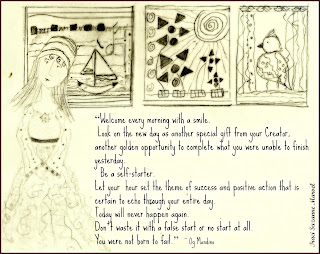 "Welcome every morning with a smile.
Look on the new day as another special gift from your Creator,
another golden opportunity to complete what you were unable to finish
yesterday.
Be a self-starter.
Let your hour set the theme of success and positive action that is
certain to echo through your entire day.
Today will never happen again.
Don't waste it with a false start or no start at all.
You were not born to fail." ~Og Mandino